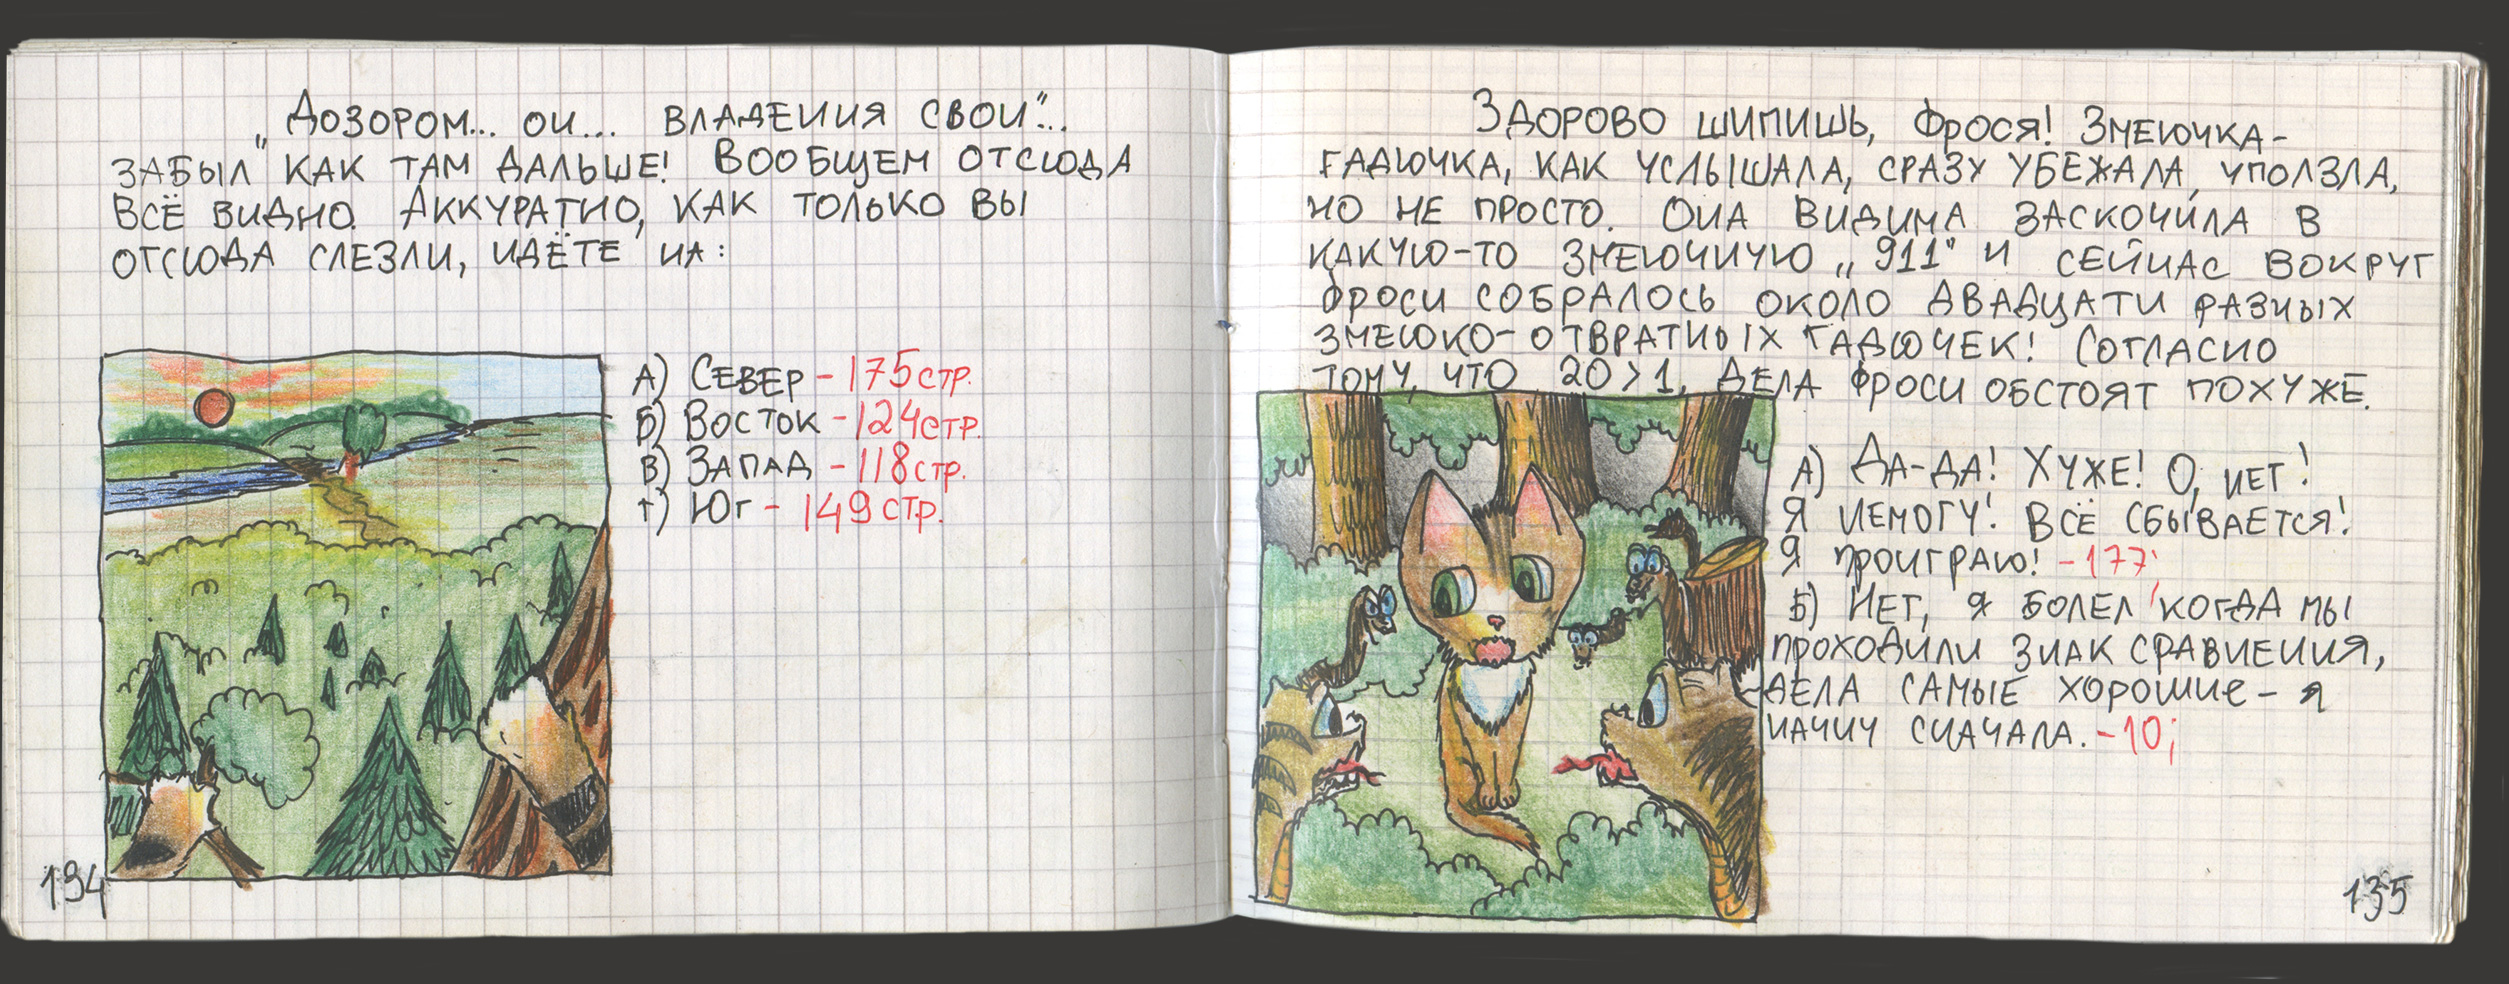 „Дозором... он... владения свои"...
забыл как там дальше! Вообщем отсюда
всё видно. Аккуратно, как только вы
отсюда слезли, идёте на:
А) Север - 175 стр.
Б) Восток - 124 стр.
В) Запад - 118 стр.
Г) Юг - 149 стр.
134
Здорово шипишь, Фрося! Змеючка-
гадючка, как услышала, сразу убежала, уползла,
но не просто. Она видима заскочила в
какую-то змеючную „911" и сейчас вокруг
Фроси собралось около двадцати разных
змеюко-отвратных гадючек! Согласно
тому, что 20>1, дела Фроси обстоят похуже.
А) Да-да! Хуже! О, нет!
Я немогу! Всё сбывается!
Я проиграю! - 177;
Б) Нет, я болел когда мы
проходили знак сравнения,
дела самые хорошие - я
начну сначала. - 10;
135